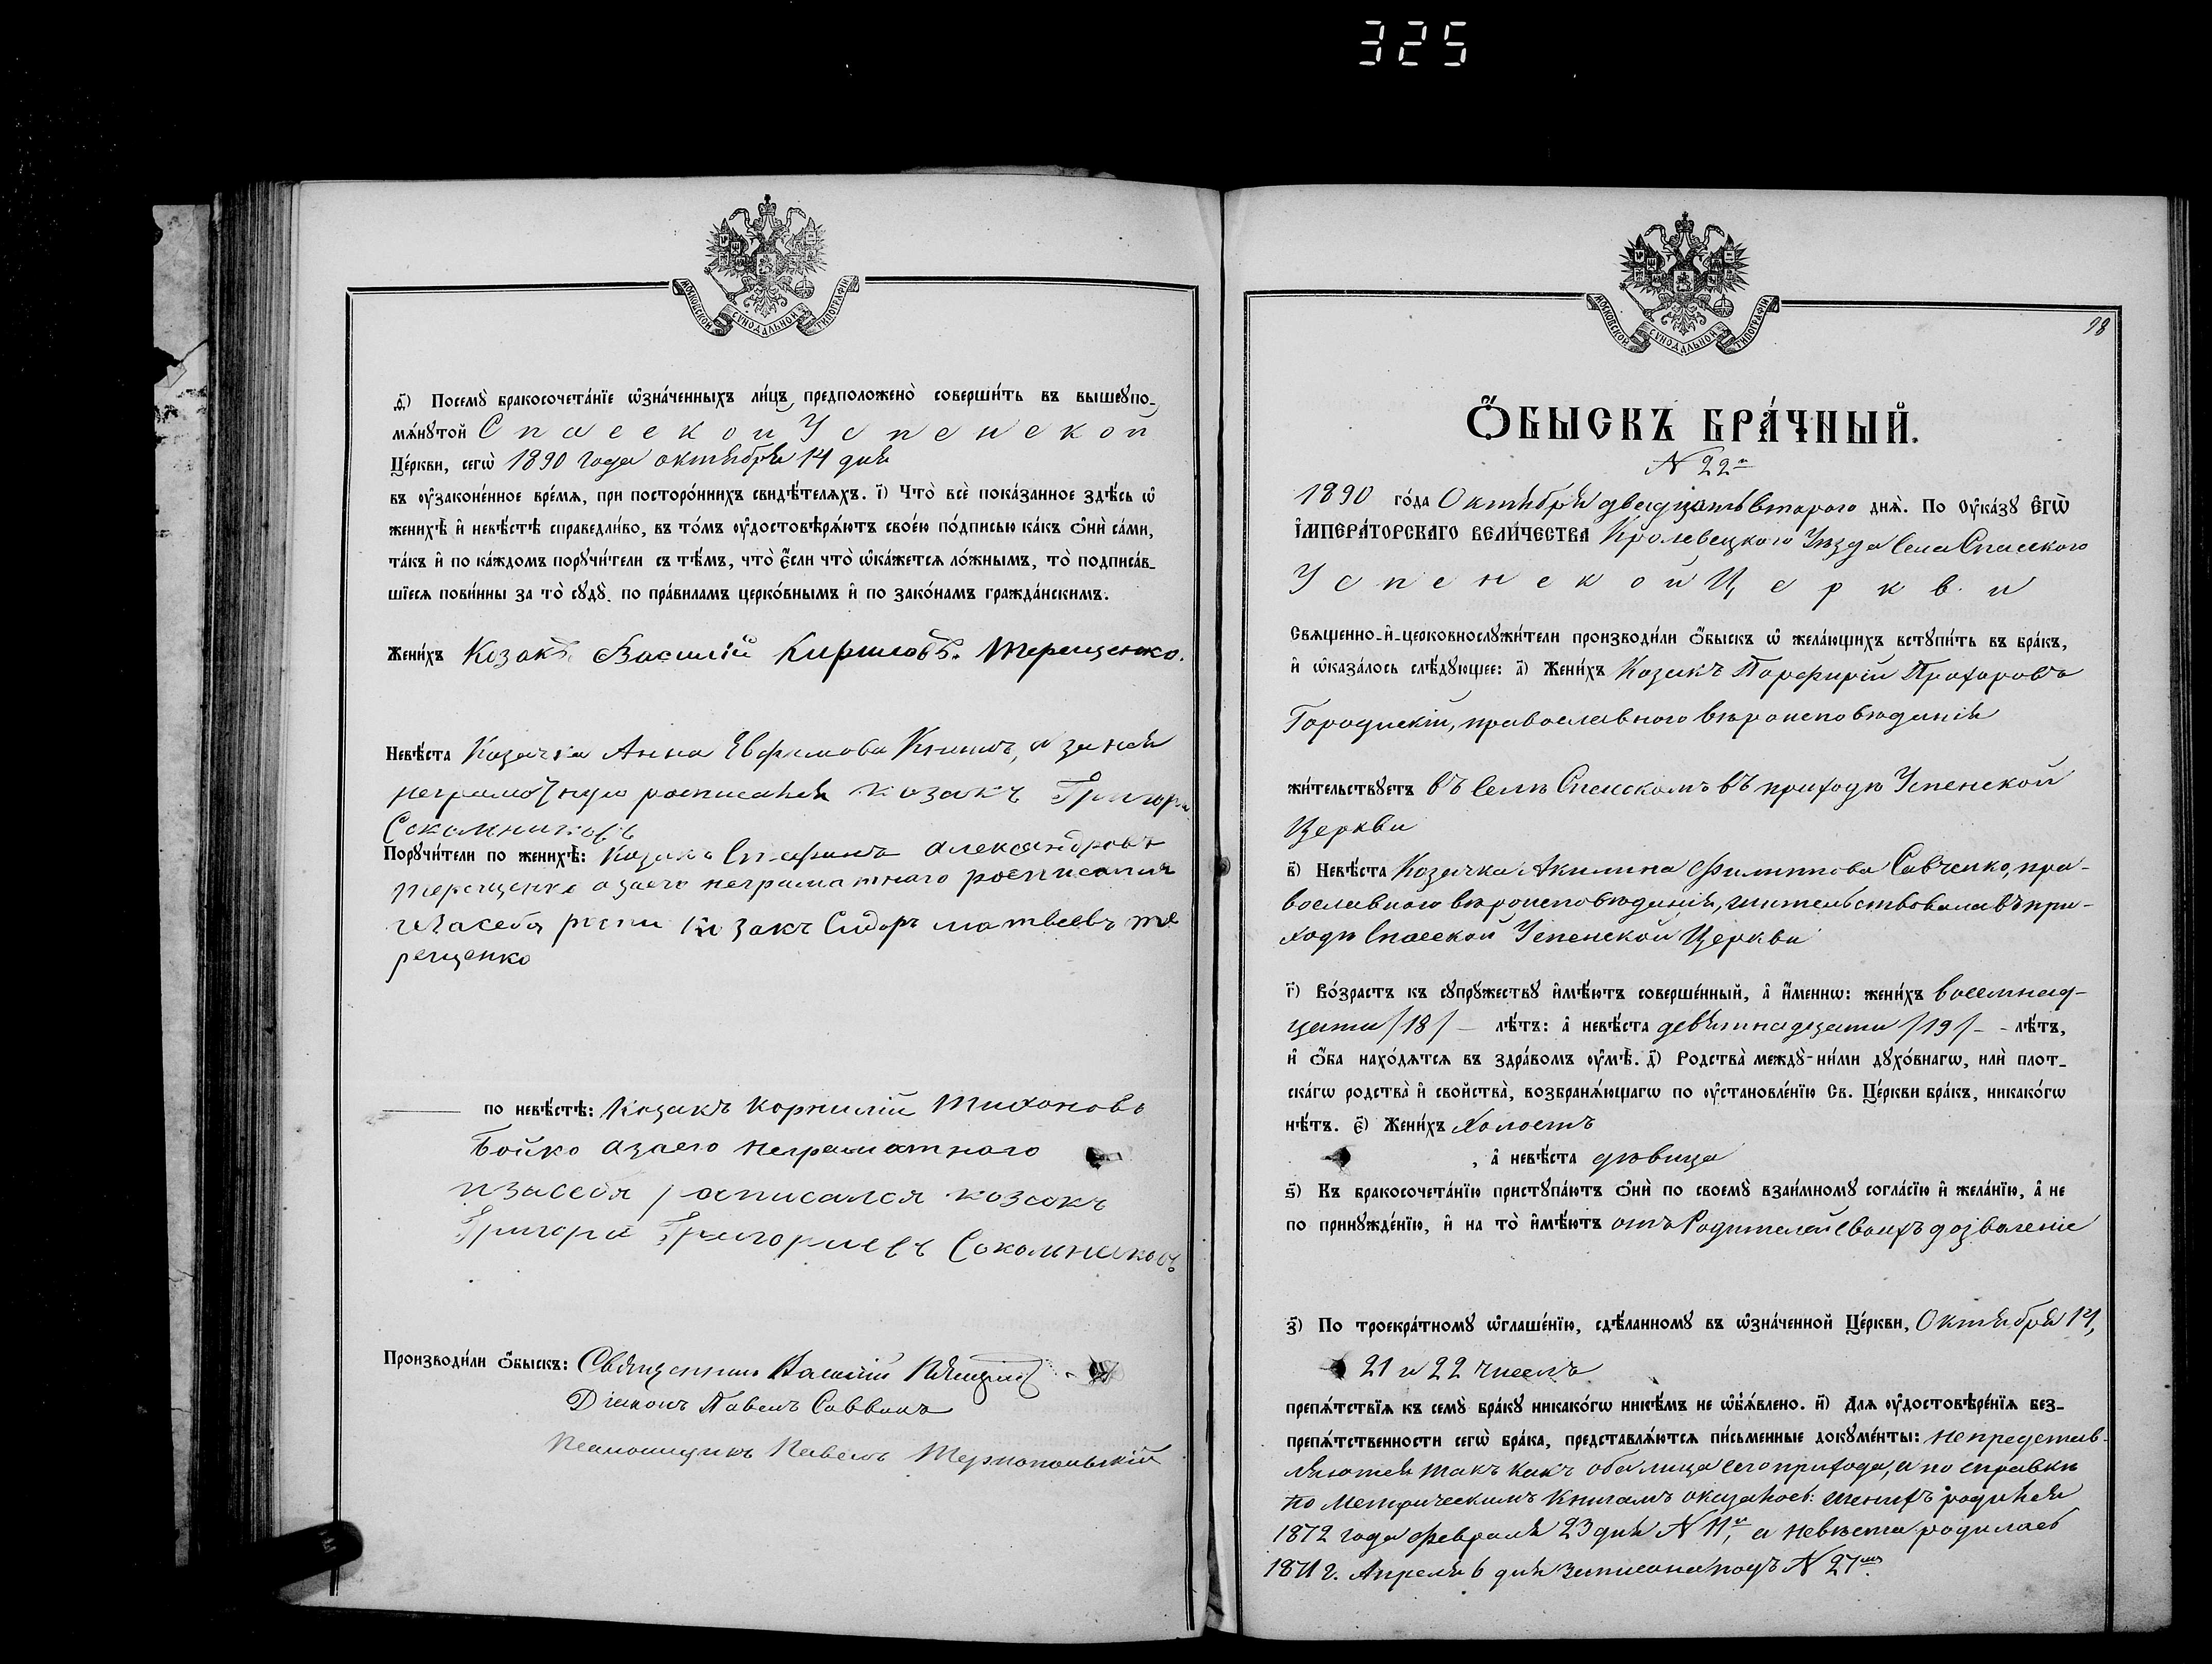 325
МОСКОВСКОЙ СѴНОДАЛЬНОЙ ТИПОГРАФІИ
ѳ҃) Посемꙋ̀ бракосочета́нїе ѡ҆зна́ченныхъ ли́цъ предположено̀ соверши́ть въ вышеꙋпо-
мѧ́нꙋтой Спасской Успенской
Це́ркви, сегѡ̀ 1890 года октября 14 дня
въ ᲂу҆законе́нное вре́мѧ, при посторо́ннихъ свидѣ́телѧхъ. і҃) Что̀ всѐ пока́занное здѣ́сь ѡ҆
женихѣ̀ и҆ невѣ́стѣ справедли́во, въ то́мъ ᲂу҆достовѣрѧ́ютъ свое́ю по́дписью ка́къ ѻ҆нѝ са́ми,
та́къ и҆ по ка́ждомъ порꙋчи́тели съ тѣ́мъ, что̀ є҆́сли что̀ ѡ҆ка́жетсѧ ло́жнымъ, то̀ подписа́в-
шїесѧ пови́нны за то̀ сꙋдꙋ̀ по пра́виламъ церко́внымъ и҆ по зако́намъ гражда́нскимъ.
Жени́хъ Козакъ Василій Кириловъ Терещенко.
Невѣ́ста Козачка Анна Евфимова Книшъ, а за нея
неграмотную росписался козакъ Григори
Сокольниковъ
Порꙋчи́тели по женихѣ̀: Козакъ Стефанъ Александровъ
Терещенко а заего неграматнаго росписался
изасебя роспи козакъ Сидоръ матвеевъ те
рещенко
по невѣ́стѣ: Козакъ Корнилій Тихоновъ
Бойко азаего неграматного
изасебя росписался козакъ
Григори Григориевъ Сокольниковъ
Производи́ли ѻ҆́быскъ: Священникъ Василій
Діаконъ Павелъ Саввинъ
Псаломщикъ Павелъ Тернопольскій
МОСКОВСКОЙ СѴНОДАЛЬНОЙ ТИПОГРАФІИ
98
Ѻ҆́БЫСКЪ БРА́ЧНЫЙ.
N 22й
1890 го́да Октября двадцать втораго днѧ̀. По Оу҆ка́зꙋ Є҆ГѠ̀
І҆МПЕРА́ТОРСКАГО ВЕЛИ́ЧЕСТВА Кролевецкого Уѣзда Села Спасского
Успенской Церкви
Свѧщенно-и҆-церковнослꙋжи́тели производи́ли ѻ҆́быскъ ѡ҆ жела́ющихъ встꙋпи́ть въ бра́къ,
и҆ ѡ҆каза́лось слѣ́дꙋющее: а҃) Жени́хъ Козакъ Порфирій Прохоровъ
Городискій, православного вѣроисповѣданія
жи́тельствꙋетъ въ Селѣ Спасскомъ въ приходѣ Успенской
Церкви
в҃) Невѣ́ста Козачка Акилина Филиппова Савченко, пра-
вославного вѣроисповѣданія, жительствовала въ при-
ходѣ Спасской Успенской Церкви
г҃) Во́зрастъ къ сꙋпрꙋжествꙋ и҆мѣ́ютъ соверше́нный, а҆ и҆́меннѡ: жени́хъ восемнад-
цати /18/ – лѣ́тъ: а҆ невѣ́ста девятнадцати /19/ – - лѣ́тъ,
и҆ ѻ҆́ба нахо́дѧтсѧ въ здра́вомъ ᲂу҆мѣ̀. д҃) Родства̀ междꙋ̀-ни́ми дꙋхо́внагѡ, илѝ плот-
ска́гѡ родства̀ и҆ свойства̀, возбранѧ́ющагѡ по ᲂу҆становле́нїю Св. Це́ркви бра́къ, никако́гѡ
нѣ́тъ. є҃) Жени́хъ Холостъ
, а҆ невѣ́ста дѣвица
ѕ҃) Къ бракосочета́нїю пристꙋпа́ютъ ѻ҆нѝ по своемꙋ̀ взаи́мномꙋ согла́сїю и҆ жела́нїю, а҆ не
по принꙋжде́нїю, и҆ на то̀ и҆мѣ́ютъ отъ Родителей своихъ дозволеніе
з҃) По троекра́тномꙋ ѡ҆глаше́нїю, сдѣ́ланномꙋ въ ѡ҆зна́ченной Це́ркви, Октября 14,
21 и 22 чиселъ
препѧ́тствїѧ къ семꙋ̀ бра́кꙋ никако́гѡ никѣ́мъ не ѡ҆б̾ѧ́влено. и҃) Для ᲂу҆достовѣре́нїѧ без-
препѧ́тственности сегѡ̀ бра́ка, представлѧ́ютсѧ пи́сьменные докꙋме́нты: не представ-
ляются такъ какъ оба лица сего прихода, а по справкѣ
по Метрическимъ Книгамъ оказалось: женихъ родился
1872 года февраля 23 дня N 11й, а невѣста родилась
1871 г. Апреля 6 дня записана подъ N 27мъ